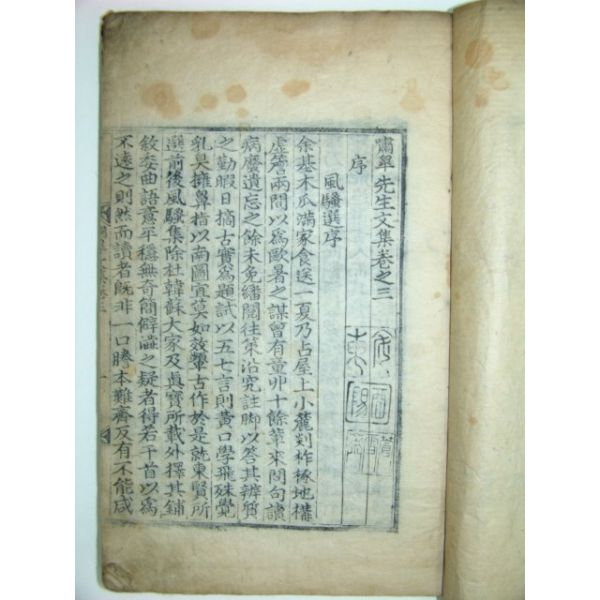 嘯皐先生文集卷之三
序
風騷選序
余基木瓜滿家食送一夏乃占屋上小麓剗柞椓地構
虛簷兩間以爲歐暑之謀曾有童丱十餘輩來問句讀
病麼遺忘之餘未免繙閱往策沿究註脚以答其辨質
之勤暇日摘古實爲題試以五七言則黃口學飛殊覺
乳臭擁鼻指以南圖宜莫如效顰古作於是就東賢所
選前後風騷集除杜韓蘇大家及眞寶所載外擇其鋪
敘委曲語意平穩無奇簡僻澁之疑者得若干首以爲
不遠之則然而讀者旣非一口勝本難齊反有不能咸